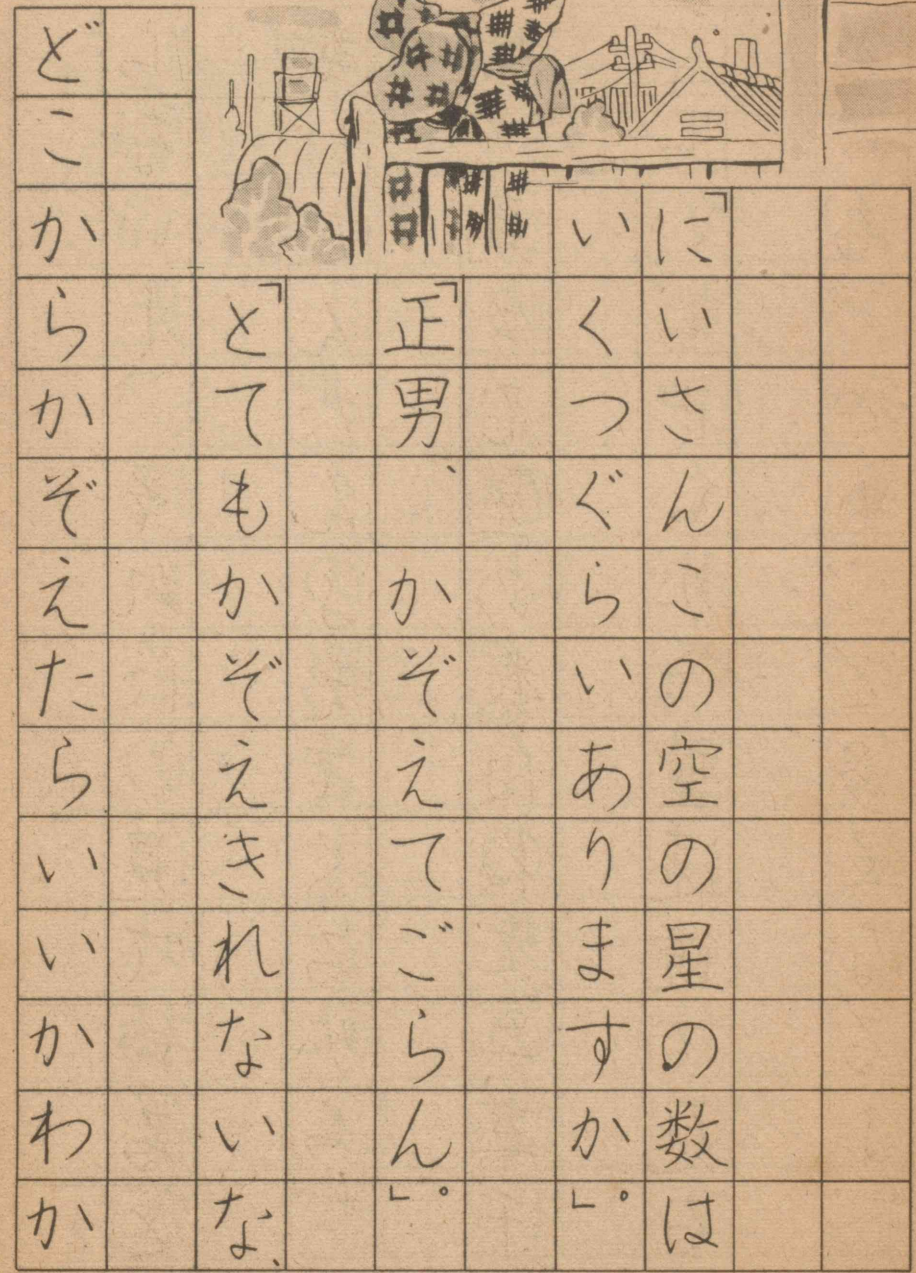 「にいさんこの空の星の数は
いくつぐらいありますか」。
「正男、かぞえてごらん」。
「とてもかぞえきれないな、
どこからかぞえたらいいかわか